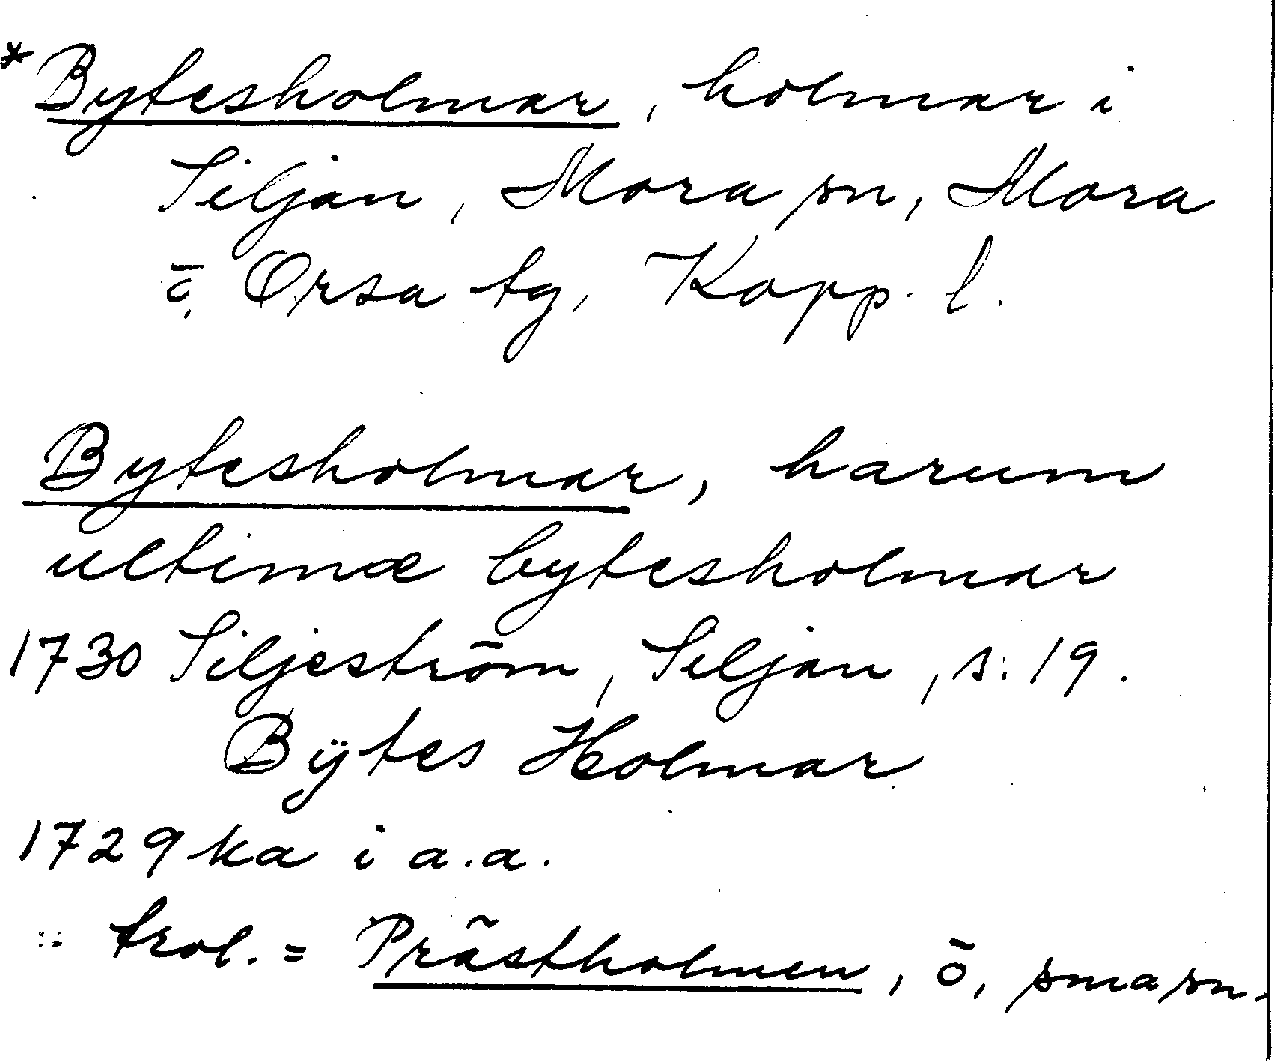 *Bytesholmar, holmar i
Siljan, Mora sn, Mora
o. Orsa tg, Kopp. l.
Bytesholmar, harum
ultimæ bytesholmar
1730 Siljeström, Siljan, s: 19.
Bÿtes Holmar
1729 ka i a.a.
trol. = Prästholmen, ö, smasn.